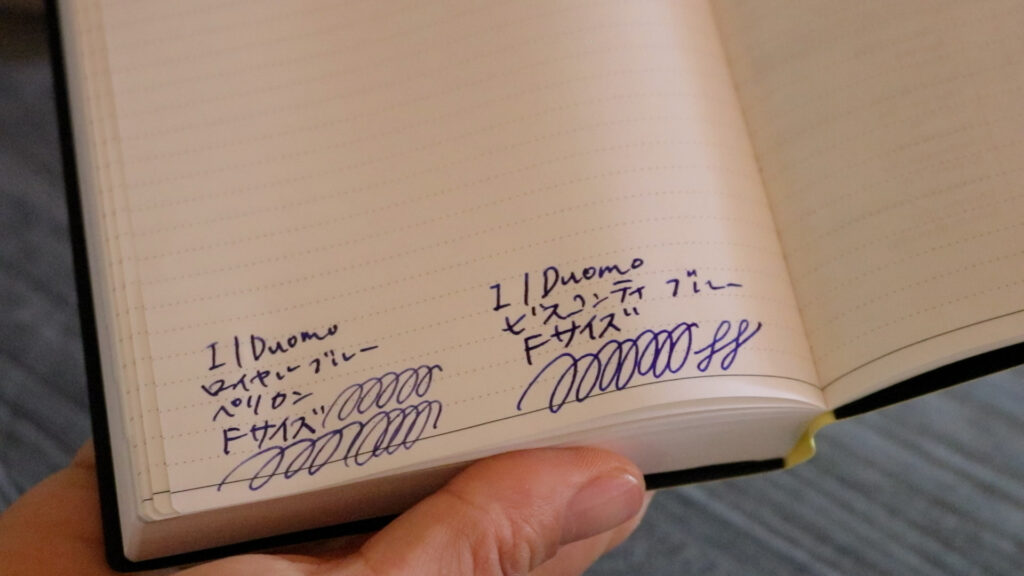 Il Duomo
ロイヤルブルー
ペリカン
Fサイズ
Il Duomo
ビスコンティ ブルー
Fサイズ